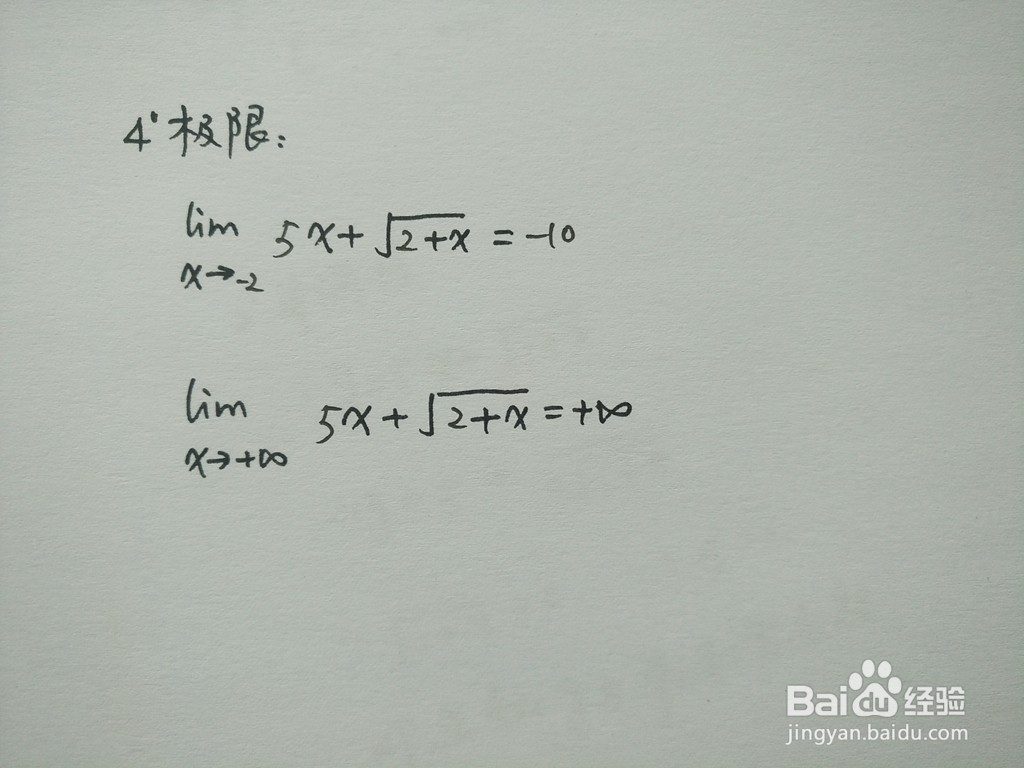 4° 极限:
lim 5x+√2+x = -10
x→-2
lim 5x+√2+x = +∞
x→+∞
Bai du 经验
jingyan.baidu.com